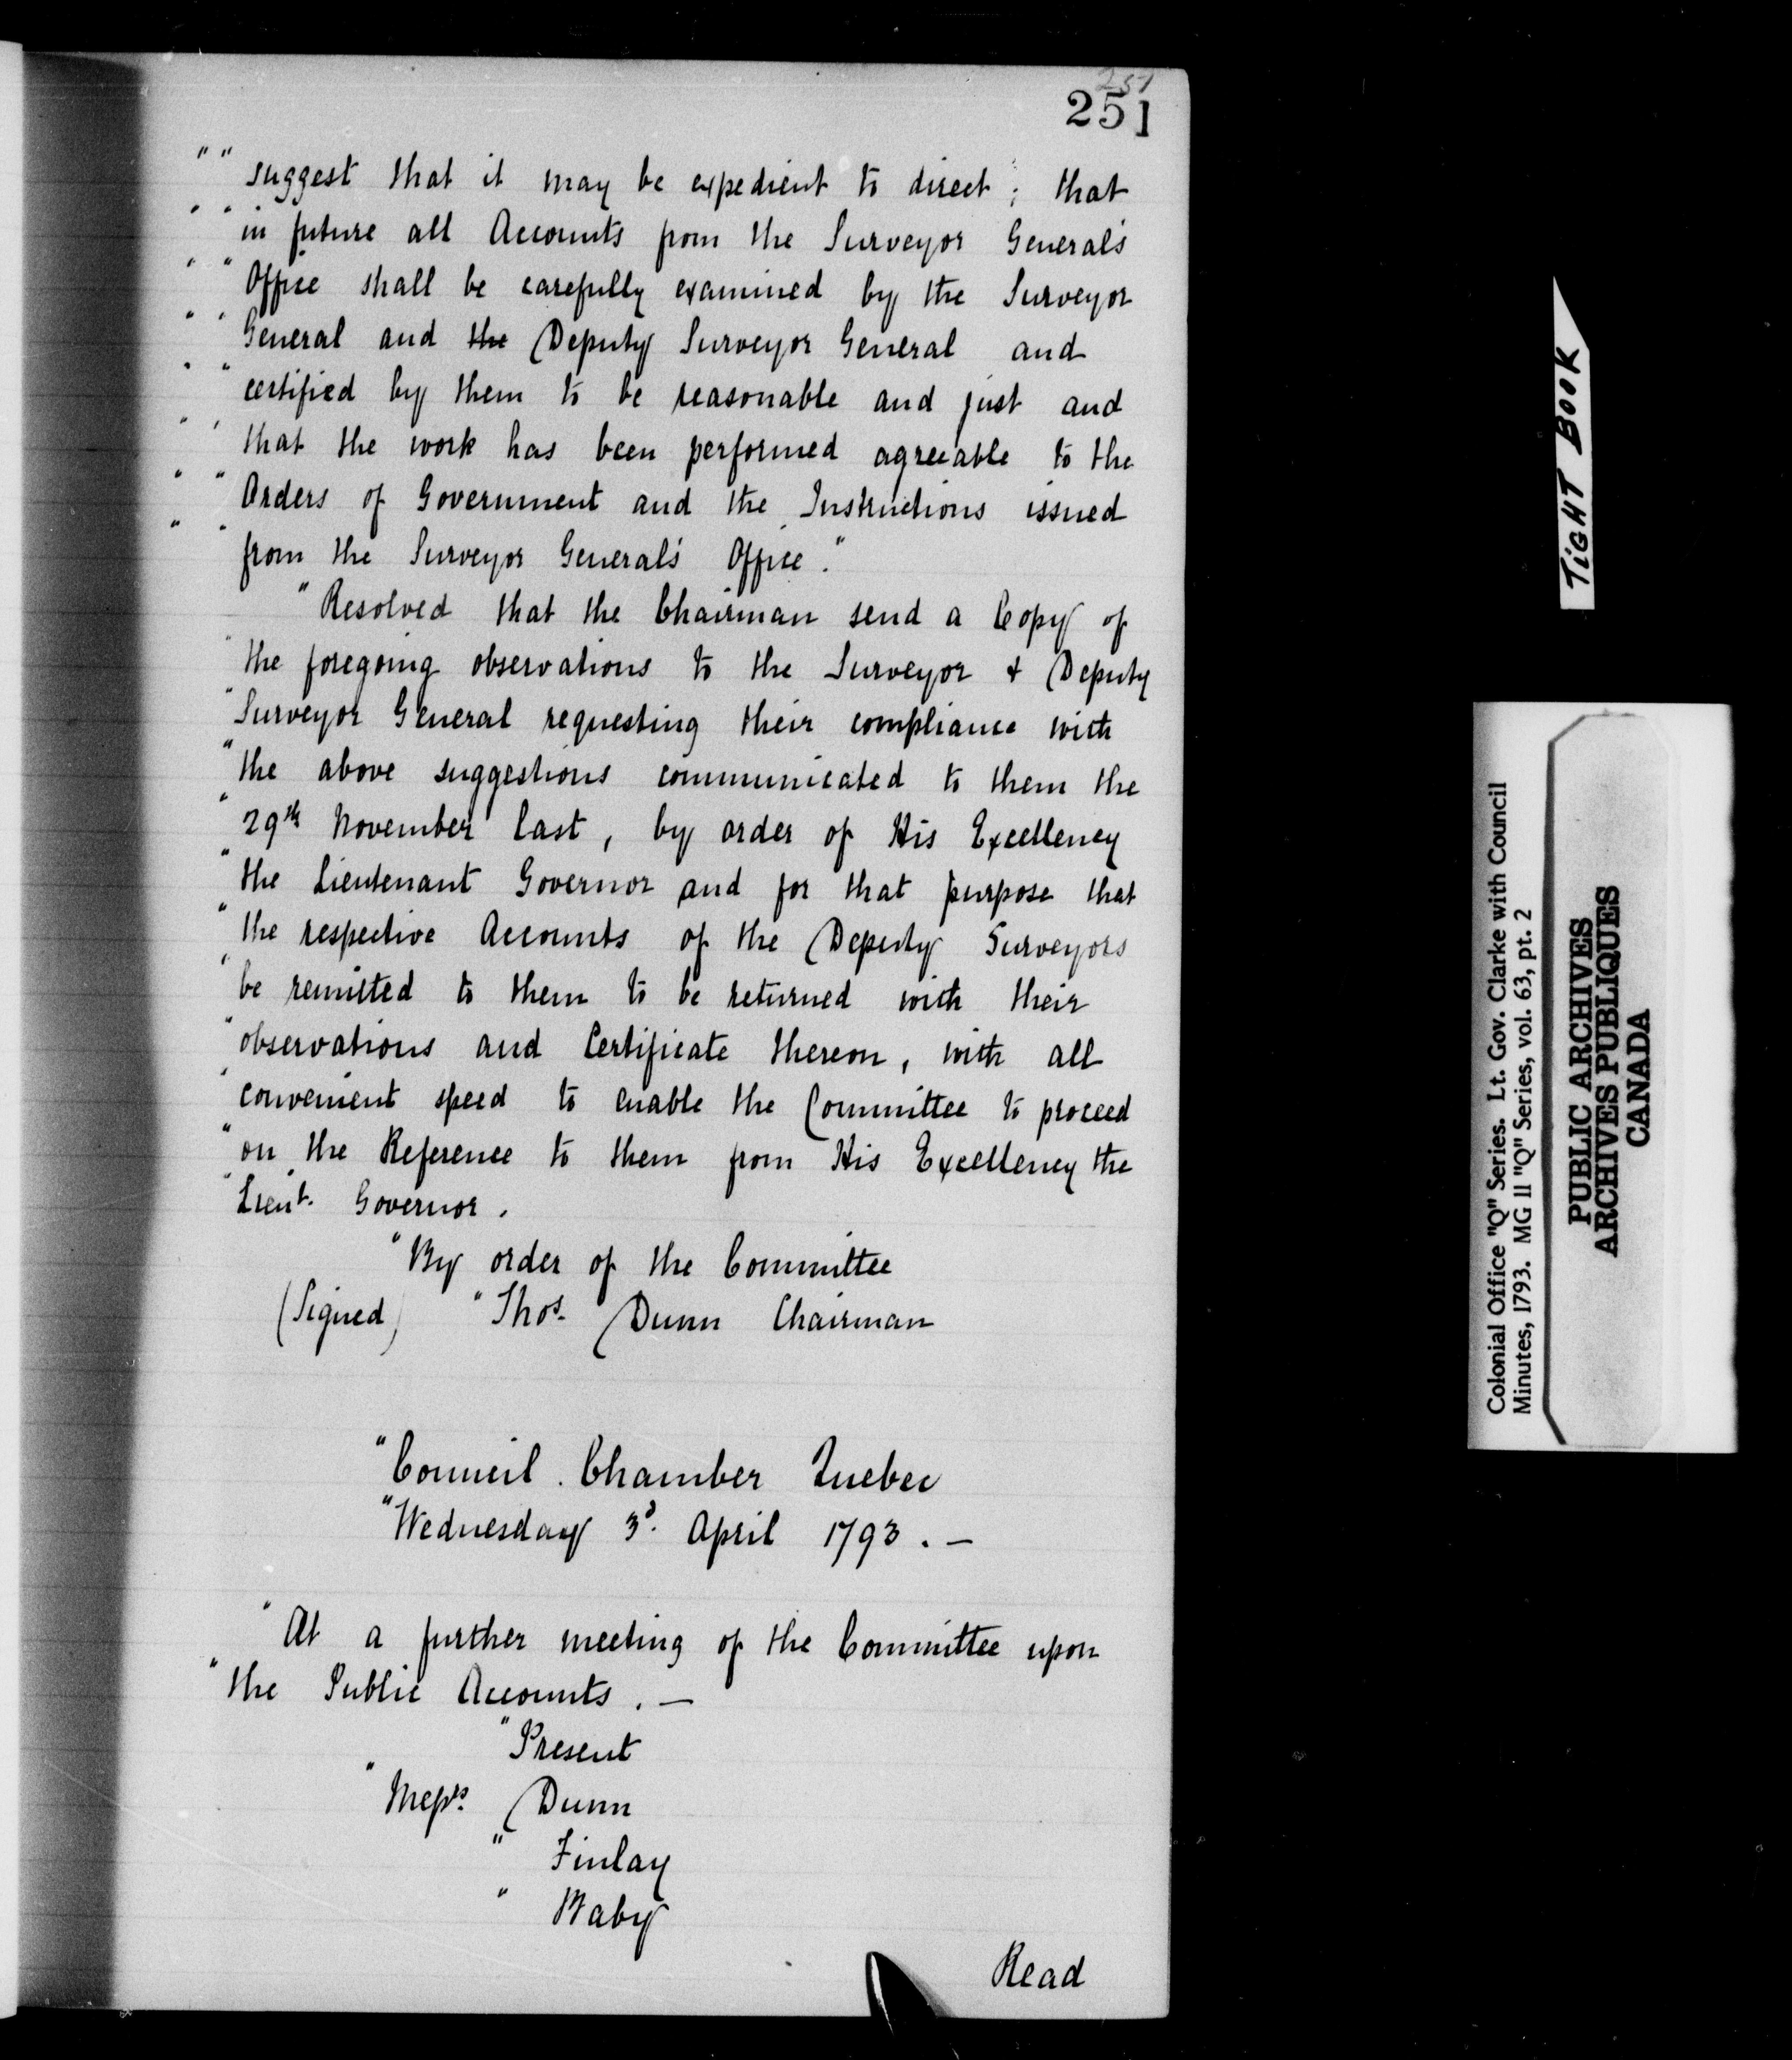 251
251
" " suggest that it may be expedient to direct ; that
" " in future all Accounts from the Surveyor General's
" " Office shall be carefully examined by the Surveyor
" " General and the Deputy Surveyor General and
" " certified by them to be reasonable and just and
" " that the work has been performed agreeable to the
" " Orders of Government and the Instructions issued
" " from the Surveyor General's Office."
"Resolved that the Chairman send a Copy of
"the foregoing observations to the Surveyor & Deputy
"Surveyor General requesting their compliance with
"the above suggestions communicated to them the
"29th November last, by order of His Excellency
"the Lieutenant Governor and for that purpose that
"the respective Accounts of the Deputy Surveyors
"be remitted to them to be returned with their
"observations and Certificate thereon, with all
"convenient speed to enable the Committee to proceed
"on the Reference to them from His Excellency the
"Lieut. Governor.
"By order of the Committee
(Signed) "Thos. Dunn Chairman
"Council Chamber Quebec
"Wednesday 3d. April 1793. —
"At a further meeting of the Committee upon
"the Public Accounts. —
"Present
"Messrs. Dunn
" Finlay
" Baby
Read
TIGHT BOOK
Colonial Office "Q" Series. Lt. Gov. Clarke with Council
Minutes, 1793. MG 11 "Q" Series, vol. 63, pt. 2
PUBLIC ARCHIVES
ARCHIVES PUBLIQUES
CANADA